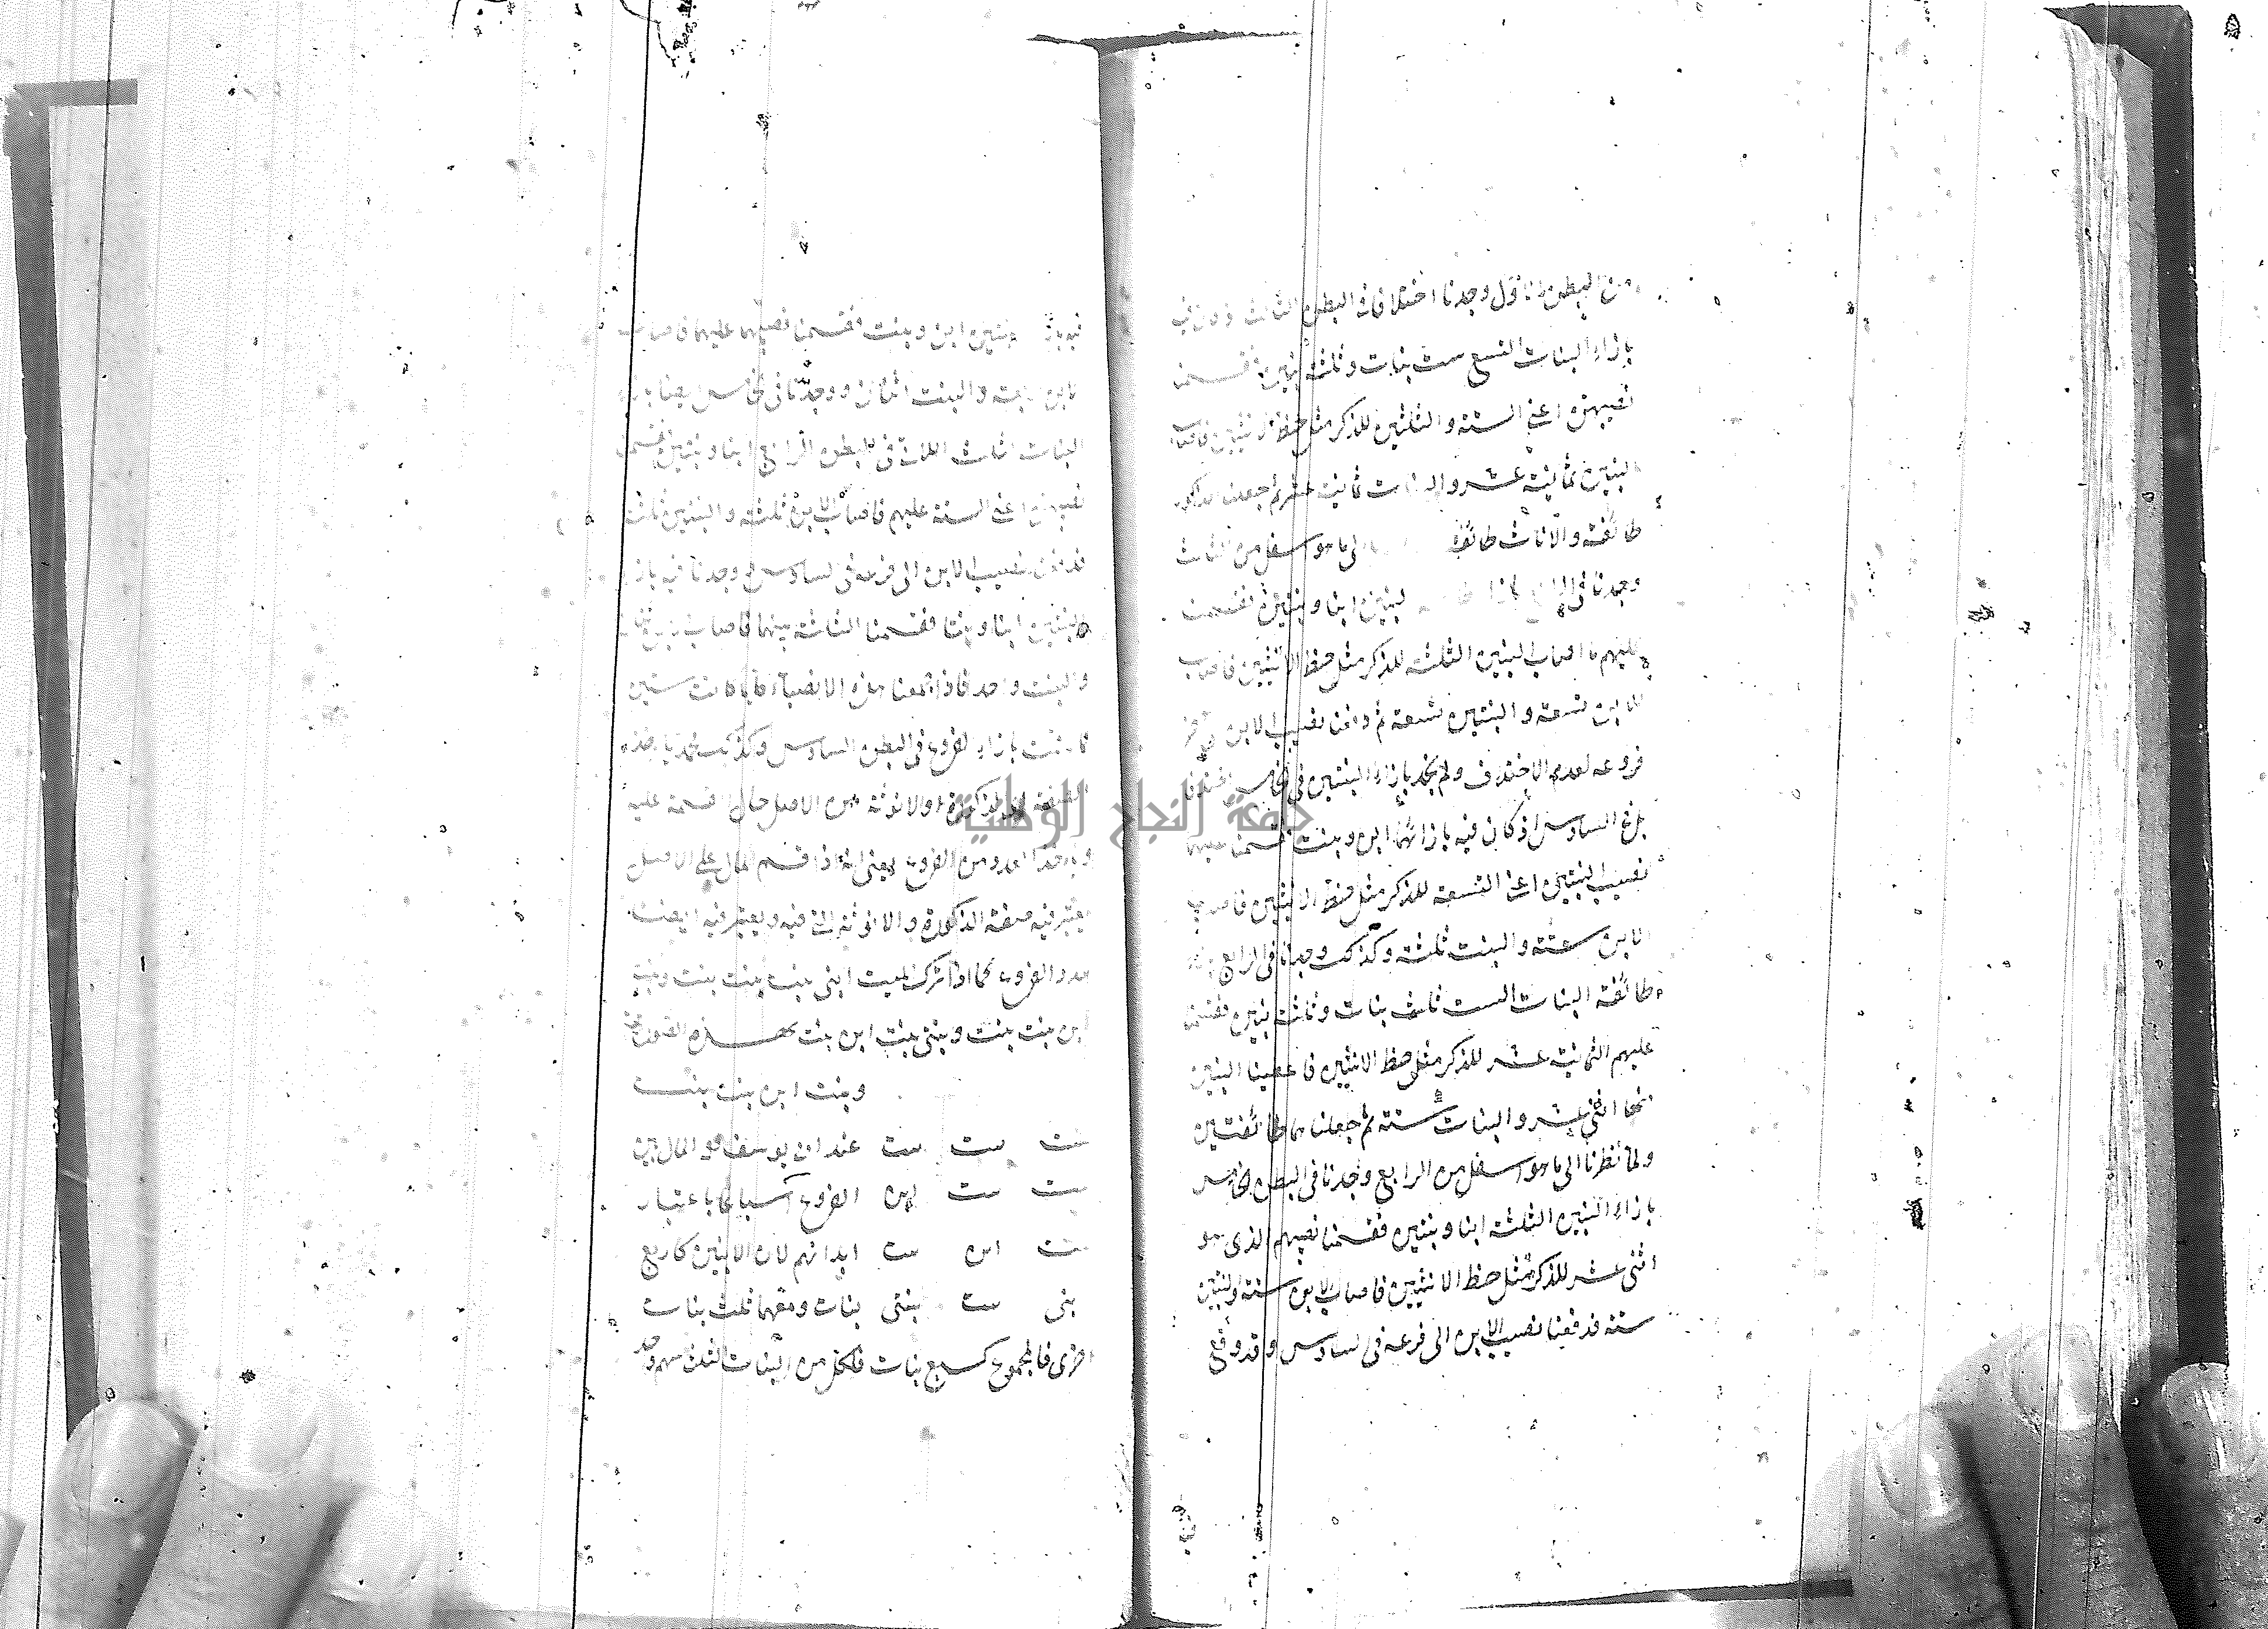 من البطن الاول وجدنا اختلافا في البطن الثالث
بازاء البنات التسع ست بنات وثلثة بنين فقسمنا
نصيبهن اعنى الستة والثلثين للذكر مثل حظ الانثيين فاصاب
البنين ثمانية عشر والبنات ثمانية عشر ثم جعلنا الذكور
طائفة والاناث طائفة الى ما هو اسفل من الثالث
وجدنا في بازاء البنين ابنا وبنتين فقسمنا
عليهم ما اصاب البنين الثلثة للذكر مثل حظ الانثيين فاصاب
الابن تسعة والبنتين تسعة ثم دفعنا نصيب الابن
فروعه لعدم الاختلاف ولم نجد بازاء البنتين في الخامس اختلافا
بل في السادس اذ كان فيه بازائهما ابن وبنت فقسمنا عليهما
نصيب البنتين اعنى التسعة للذكر مثل حظ الانثيين فاصاب
الابن ستة والبنت ثلثة وكذلك وجدنا في الرابع بازاء
طائفة البنات الست ثلث بنات وثلثة بنين فقسمنا
عليهم الثمانية عشر للذكر مثل حظ الانثيين فاعطينا البنين
منها اثنى عشر والبنات ستة ثم جعلناهما طائفتين
ولما نظرنا الى ما هو اسفل من الرابع وجدنا في البطن الخامس
بازاء البنين الثلثة ابنا وبنتين فقسمنا نصيبهم الذى هو
اثنى عشر للذكر مثل حظ الانثيين فاصاب الابن ستة والبنتين
ستة فدفعنا نصيب الابن الى فرعه في السادس وقد وقع
فيه بازاء البنتين ابن وبنت فقسمنا نصيبهما عليهما فاصاب
الابن اربعة والبنت اثنان ووجدنا في الخامس ايضا بازاء
البنات الثلث اللاتي في البطن الرابع ابنا وبنتين فقسمنا
نصيبهن اعنى الستة عليهم فاصاب الابن ثلثة والبنتين ثلثة
فدفعنا نصيب الابن الى فرعه في السادس ووجدنا فيه بازاء
البنتين ابنا وبنتا فقسمنا الثلثة بينهما فاصاب الابن اثنان
والبنت واحد فاذا جمعنا هذه الانصباء كانت ستين
بازاء الفروع في البطن السادس وكذلك محمد ياخذ
الصفة اى الذكورة والانوثة من الاصل حال القسمة عليه
وياخذ العدد من الفروع يعنى انه اذا قسم المال على الاصل
يعتبر فيه صفة الذكورة والانوثة التى فيه ويعتبر فيه ايضا
عدد الفروع كما اذا ترك الميت ابنى بنت بنت بنت وبنت
ابن بنت بنت وبنتى بنت ابن بنت بهذه الصورة
وبنت ابن بنت بنت
بنت بنت بنت عند ابى يوسف المال بين
بنت بنت ابن الفروع اسباعا باعتبار
بنت ابن بنت ابدانهم لان الابنين كاربع
بنى بنت بنتى بنات ومعهما ثلث بنات
اخرى فالمجموع كسبع بنات فلكل من البنات الثلث سهم واحد
جامعة النجاح الوطنية